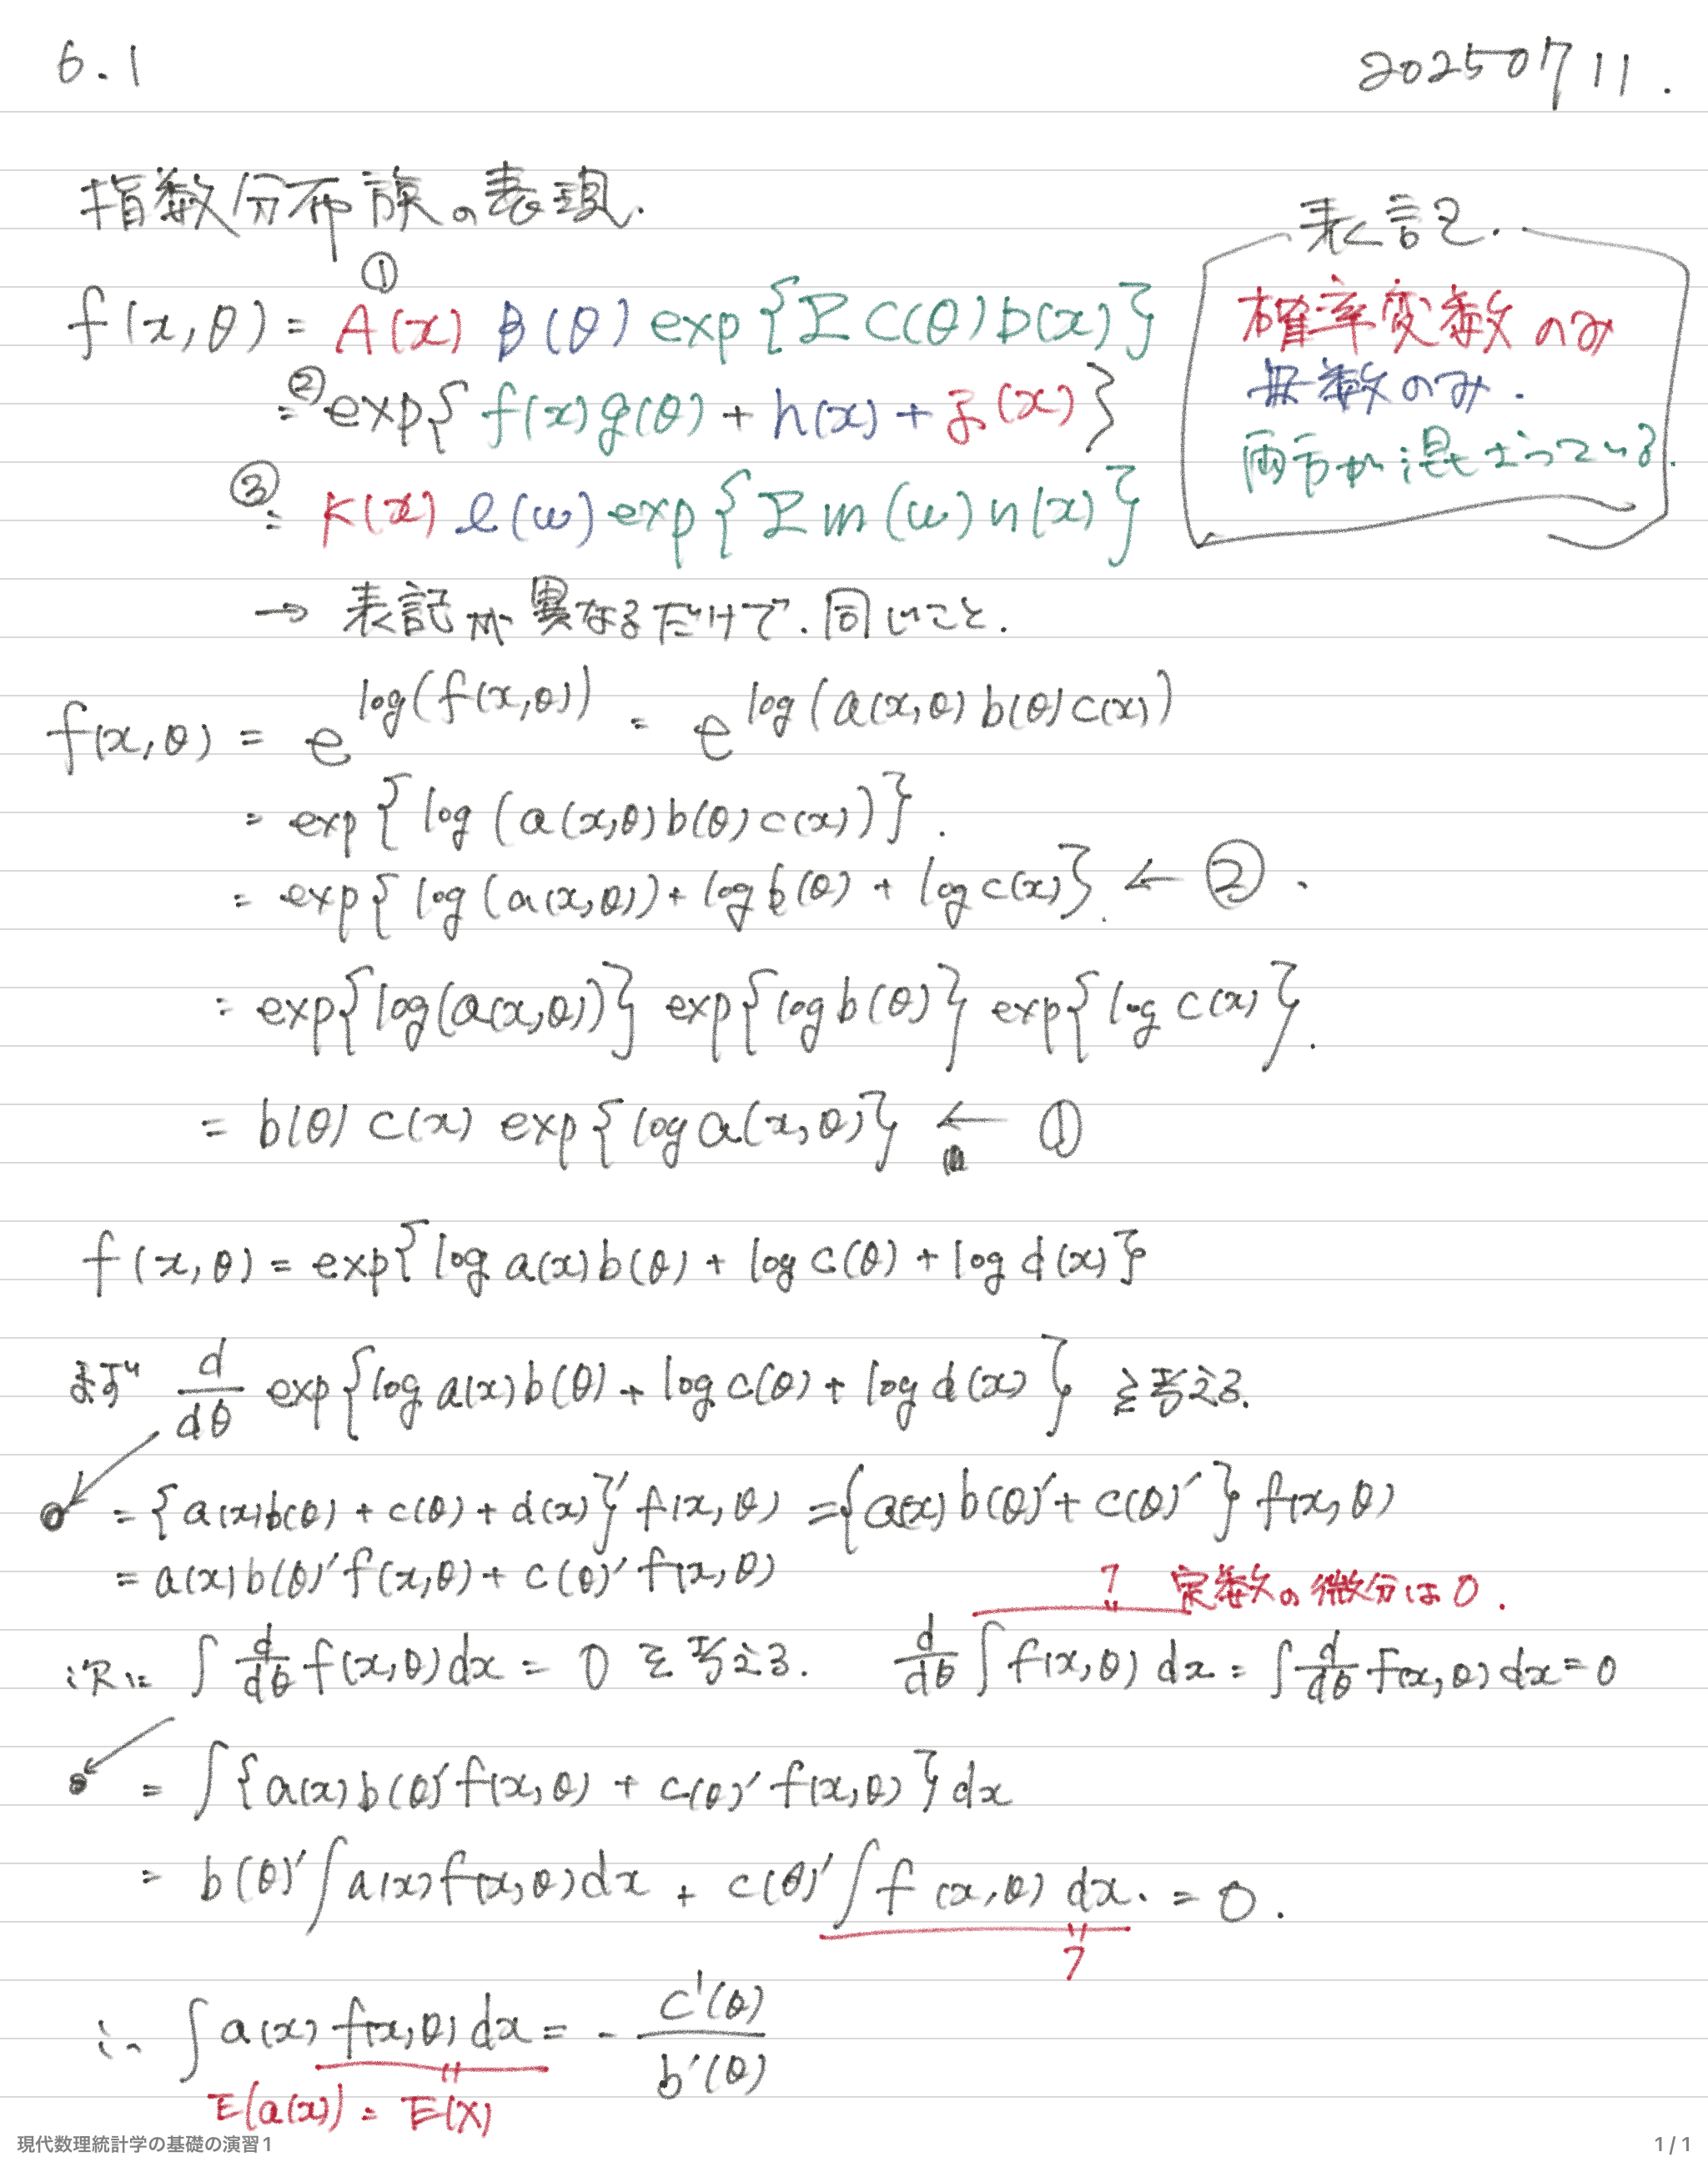 6.1
20250711.
指数分布族の表現.
表記.
確率変数のみ
母数のみ.
両方が混ざっている.
①
f(x,θ) = A(x) B(θ) exp{Σ C(θ)D(x)}
②
= exp{ f(x)g(θ) + h(x) + j(x) }
③
= K(x) l(ω) exp{Σ m(ω) n(x)}
→ 表記が異なるだけで.同じこと.
f(x,θ) = e^{log(f(x,θ))} = e^{log(a(x,θ) b(θ) c(x))}
= exp{ log (a(x,θ) b(θ) c(x)) }.
= exp{ log (a(x,θ)) + log b(θ) + log c(x) }. ← ②.
= exp{log(a(x,θ))} exp{log b(θ)} exp{log c(x)}.
= b(θ) c(x) exp{log a(x,θ)} ← ①
f(x,θ) = exp{log a(x) b(θ) + log c(θ) + log d(x)}
まず d/dθ exp{log a(x) b(θ) + log c(θ) + log d(x)} を考える.
= {a(x)b(θ) + c(θ) + d(x)}' f(x,θ) = {a(x) b(θ)' + c(θ)'} f(x,θ)
= a(x) b(θ)' f(x,θ) + c(θ)' f(x,θ)
1 定数の微分は0.
次に ∫ d/dθ f(x,θ) dx = 0 を考える. d/dθ ∫ f(x,θ) dx = ∫ d/dθ f(x,θ) dx = 0
= ∫ {a(x) b(θ)' f(x,θ) + c(θ)' f(x,θ)} dx
= b(θ)' ∫ a(x) f(x,θ) dx + c(θ)' ∫ f(x,θ) dx. = 0.
1
∴ ∫ a(x) f(x,θ) dx = - c'(θ) / b'(θ)
E(a(x)) = E(X)
現代数理統計学の基礎の演習1
1 / 1